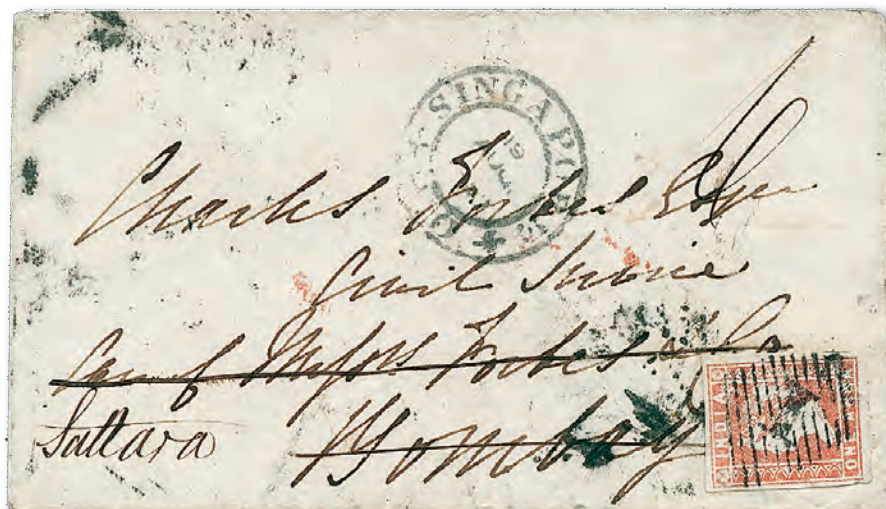 SINGAPORE
Charles Forbes Esqre
Civil Service
Care of Messrs Forbes & Co
Sattara
Bombay
INDIA
ONE